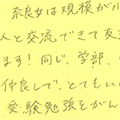 奈良女は規模が小
人と交流できて友
ます！同じ、学部、
仲良しで、とてもい
受験勉強をがん